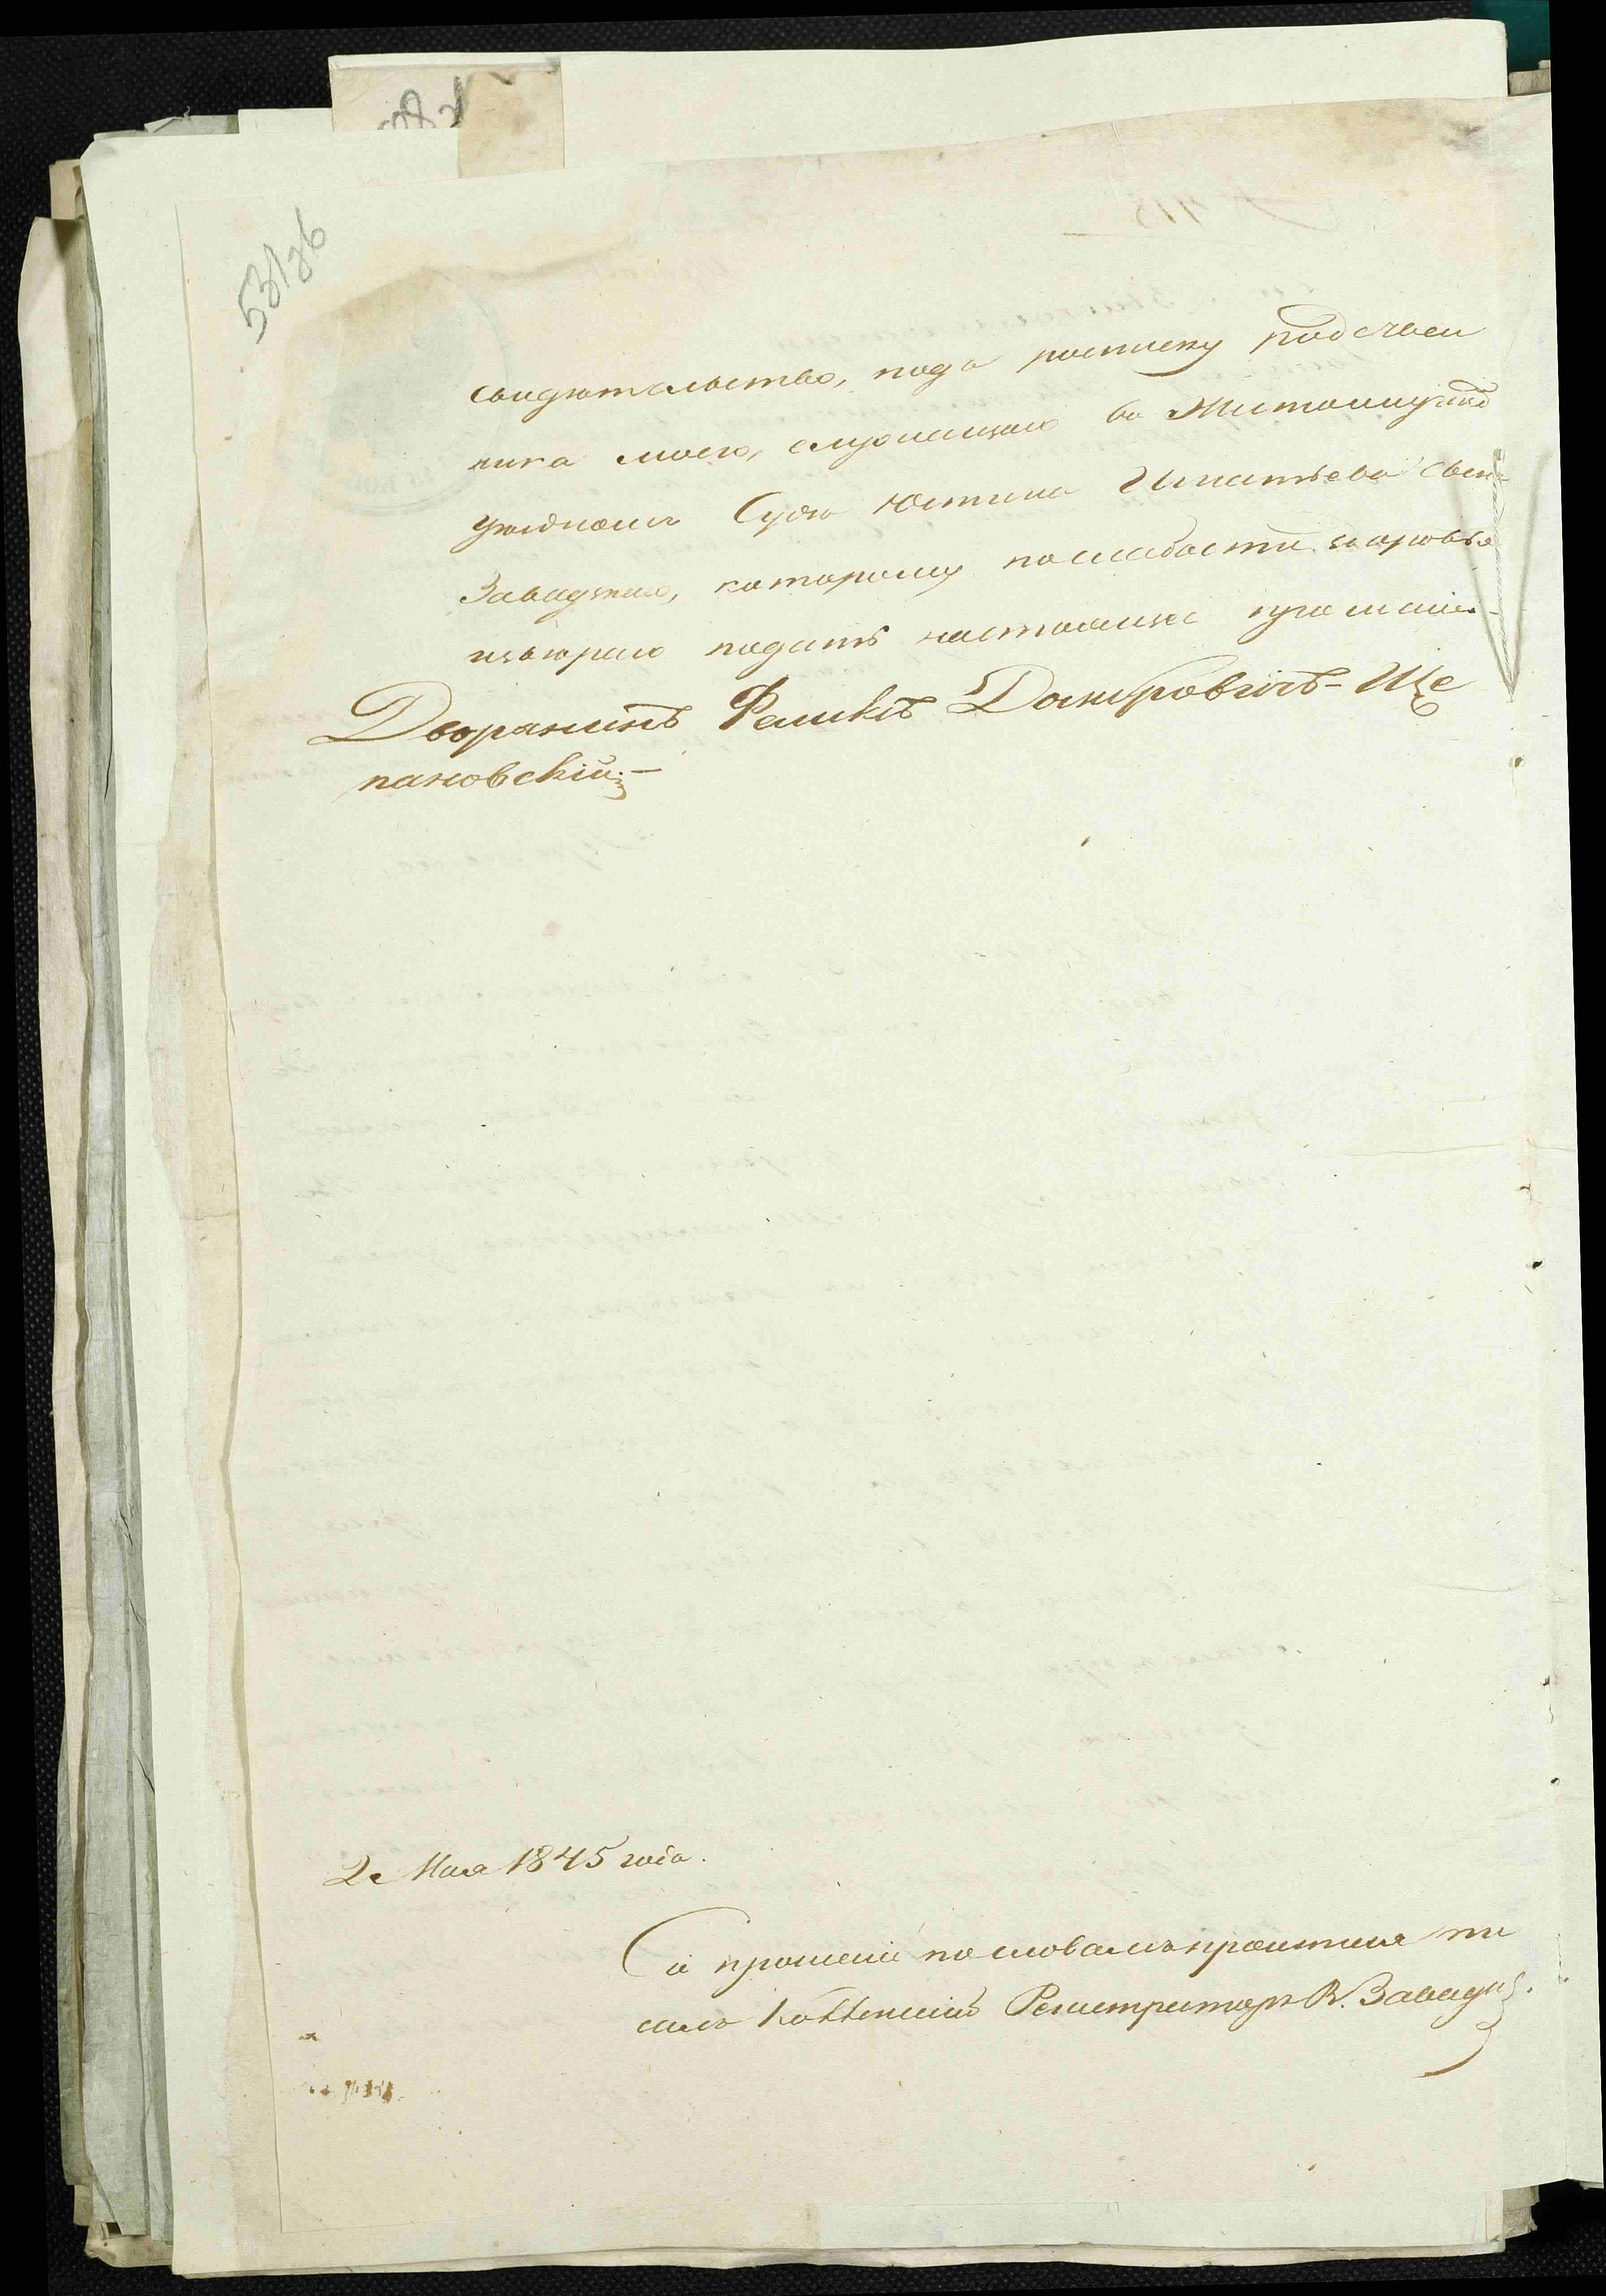 53/зв
свидѣтельство, подъ росписку родствен
ника моего, служащаго въ Житомирскомъ
уѣздномъ Судѣ Юстина Игнатьева сына
Завадзкаго, которому по слабости здоровья
ввѣряю подать настоящее прошеніе.
Дворянинъ Феликсъ Домбровичъ-Ще
пановскій.
2 Мая 1845 года.
Сіе прошеніе по словамъ просителя пи
салъ Коллежскій Регистраторъ Завадз